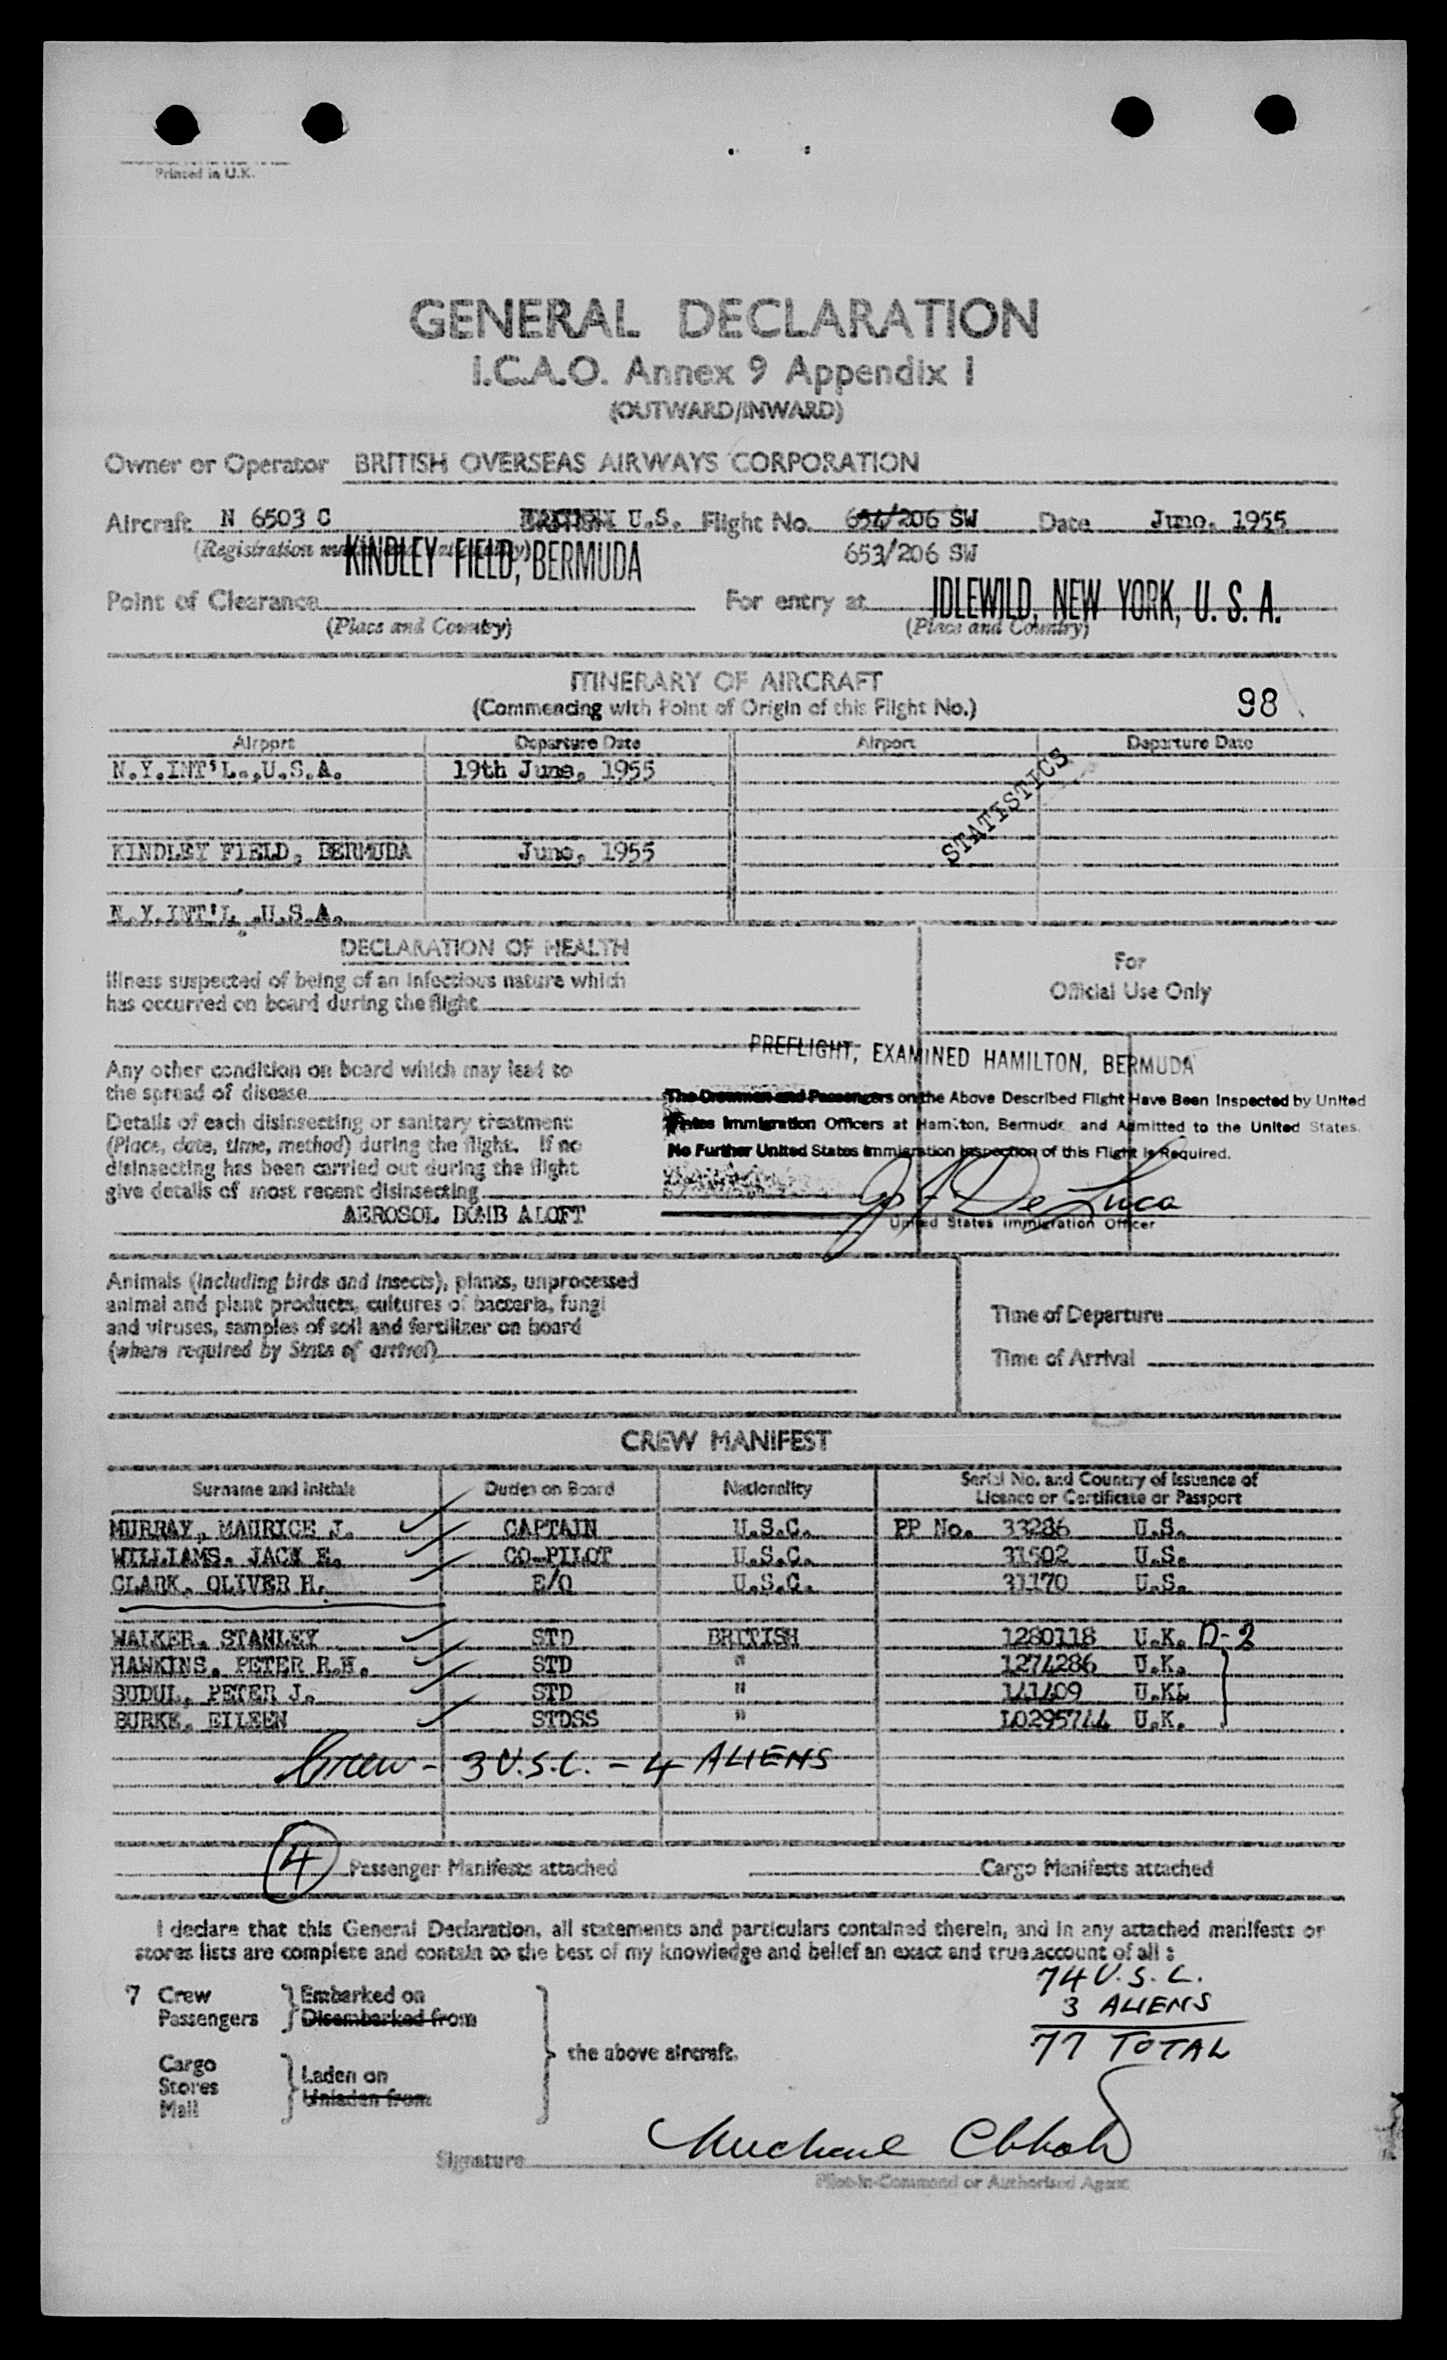 Printed in U.K.
GENERAL DECLARATION
I.C.A.O. Annex 9 Appendix I
(OUTWARD/INWARD)
Owner or Operator BRITISH OVERSEAS AIRWAYS CORPORATION
Aircraft N 6503 C BRITISH U.S. Flight No. 654/206 SW Date June, 1955
(Registration 653/206 SW
KINDLEY FIELD, BERMUDA
Point of Clearance For entry at IDLEWILD, NEW YORK, U. S. A.
(Place and Country) (Place and Country)
ITINERARY OF AIRCRAFT
(Commencing with Point of Origin of this Flight No.) 98
Airport Departure Date Airport Departure Date
N.Y.INT'L.,U.S.A. 19th June, 1955
STATISTICS
KINDLEY FIELD, BERMUDA June, 1955
N.Y.INT'L.,U.S.A.
DECLARATION OF HEALTH
For
Official Use Only
Illness suspected of being of an infectious nature which
has occurred on board during the flight
PREFLIGHT, EXAMINED HAMILTON, BERMUDA
Any other condition on board which may lead to
the spread of disease
The Crewmen and Passengers on the Above Described Flight Have Been Inspected by United
States Immigration Officers at Hamilton, Bermuda and Admitted to the United States.
No Further United States Immigration Inspection of this Flight is Required.
Details of each disinsecting or sanitary treatment
(Place, date, time, method) during the flight. If no
disinsecting has been carried out during the flight
give details of most recent disinsecting
AEROSOL BOMB ALOFT
De Luca
United States Immigration Officer
Animals (including birds and insects), plants, unprocessed
animal and plant products, cultures of bacteria, fungi
and viruses, samples of soil and fertilizer on board
(where required by State of arrival)
Time of Departure
Time of Arrival
CREW MANIFEST
Surname and Initials Duties on Board Nationality Serial No. and Country of Issuance of
Licence or Certificate or Passport
MURRAY, MAURICE J. CAPTAIN U.S.C. PP No. 33286 U.S.
WILLIAMS. JACK E. CO-PILOT U.S.C. 31502 U.S.
CLARK. OLIVER H. E/O U.S.C. 31170 U.S.
WALKER. STANLEY STD BRITISH 1280118 U.K. D-2
HAWKINS. PETER R.H. STD " 1274286 U.K.
SUDUL, PETER J. STD " 141409 U.KL
BURKE. EILEEN STDSS " LO295744 U.K.
Crew - 3 U.S.C. - 4 ALIENS
4 Passenger Manifests attached Cargo Manifests attached
I declare that this General Declaration, all statements and particulars contained therein, and in any attached manifests or
stores lists are complete and contain to the best of my knowledge and belief an exact and true account of all :
74 U.S.C.
3 ALIENS
77 TOTAL
7 Crew Embarked on
Passengers Disembarked from
the above aircraft.
Cargo
Stores Laden on
Mail Unladen from
Signature Michael
Pilot-in-Command or Authorised Agent